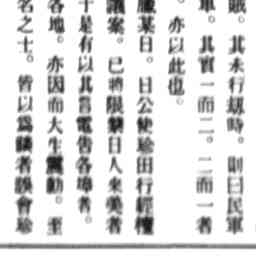 賊。其未行刼時。則曰民軍
軍。其實一而二。二而一者
。亦以此也。
服某日。日公使珍田行經檀
議案。已將限禁日人來美者
于是有以其言電告各埠者。
各地。亦因而大生震動。至
名之士。皆以爲隣者誤會珍